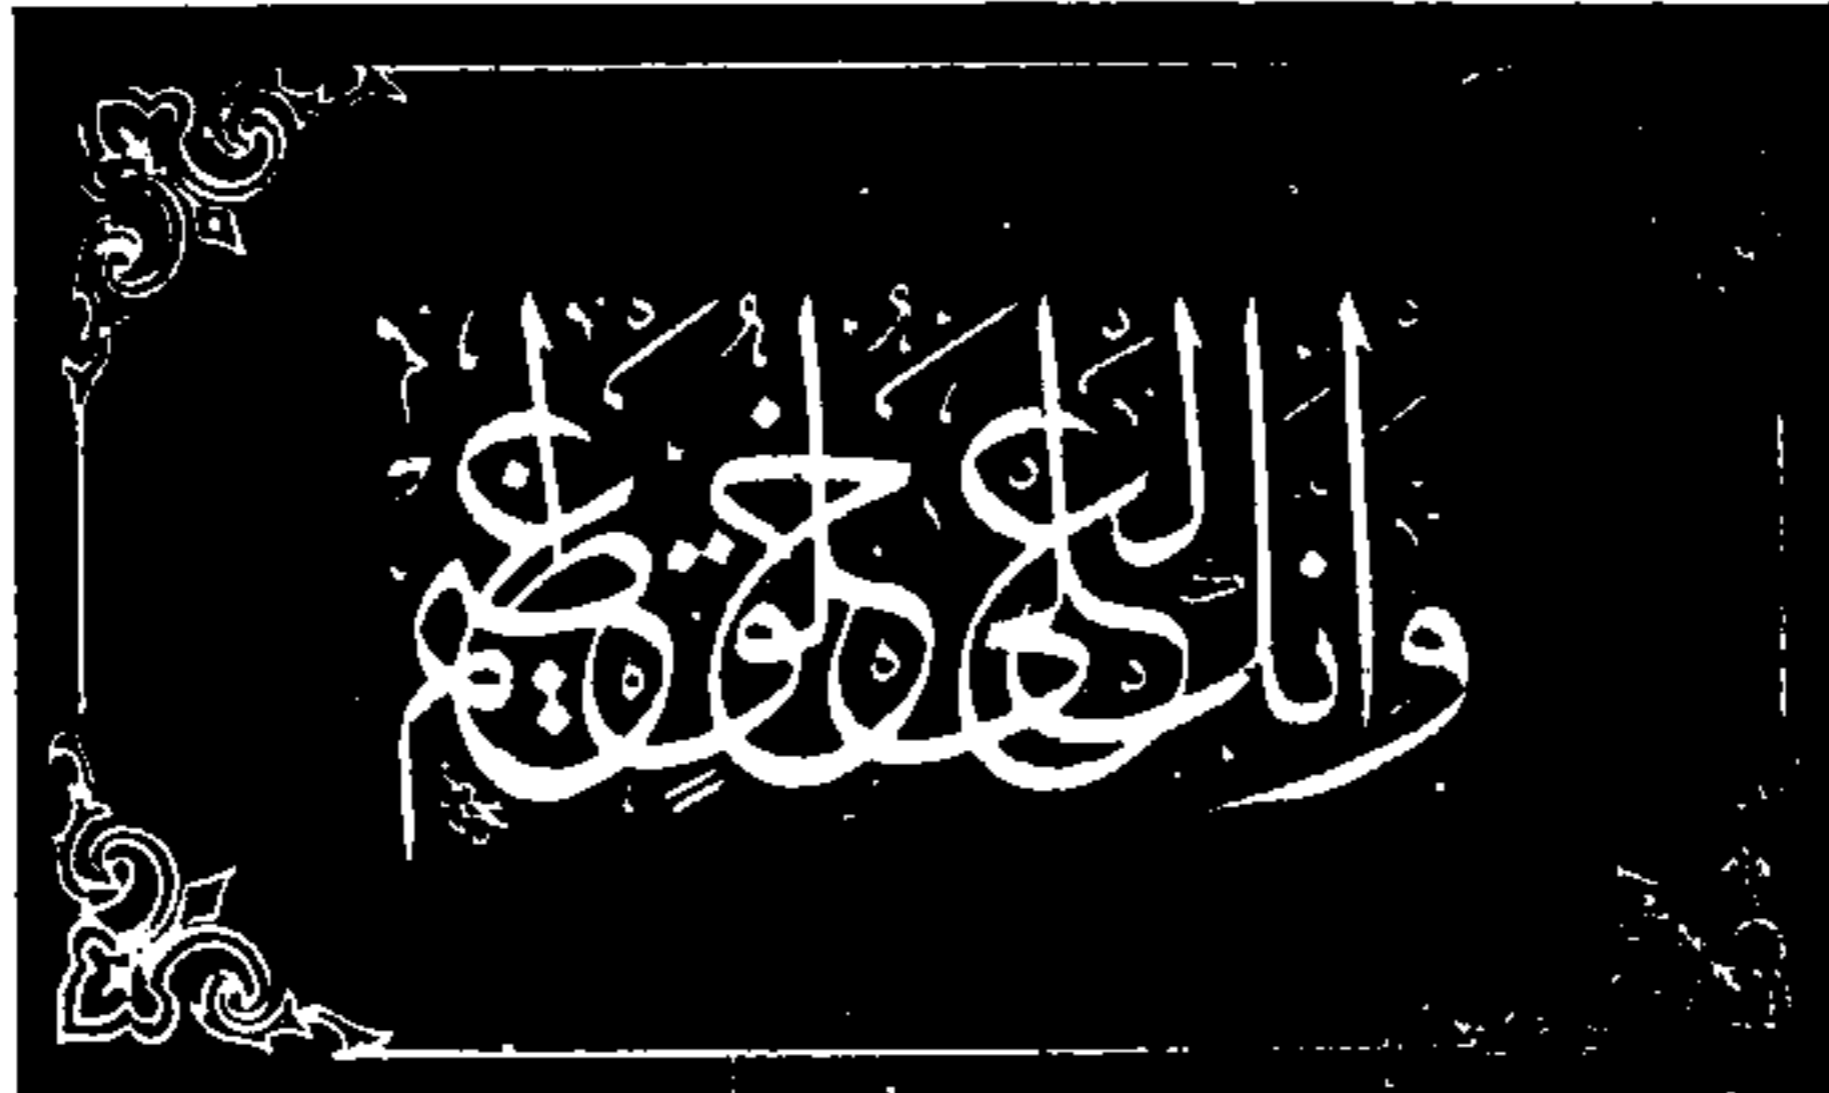 وانك لعلى خلق عظيم